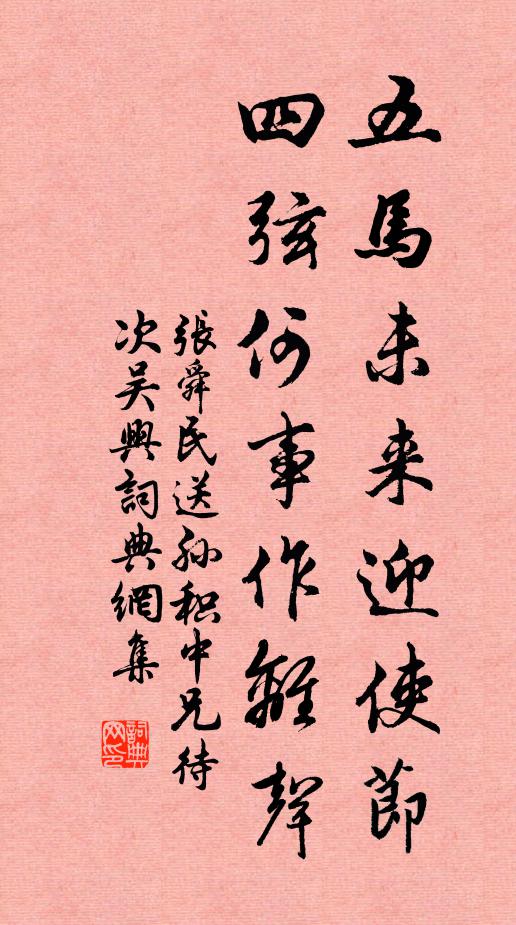 五馬未来迎使節
四弦何事作離聲
張舜民送孙积中兄待
次吴興詞典網集
詞典
网印